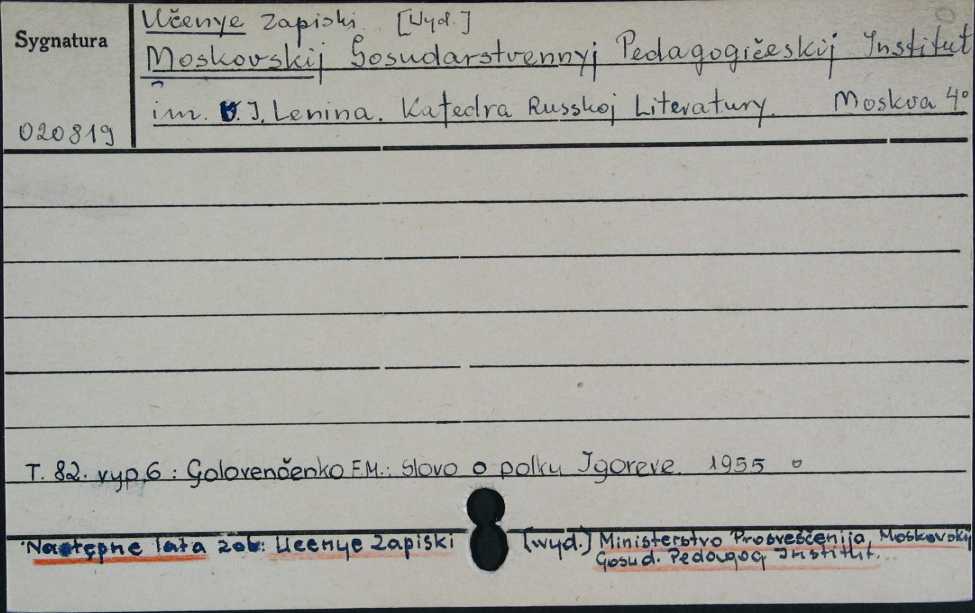 Učenye Zapiski. [Wyd.]
Sygnatura
Moskovskij Gosudarstvennyj Pedagogičeskij Institut
im. V. I. Lenina. Katedra Russkoj Literatury. Moskva 4°
020819
T. 82. vyp. 6 : Golovenčenko F.M.: Slovo o polku Igoreve. 1955
Następne lata zob: Ucenye Zapiski [wyd.] Ministerstvo Prosveščenija, Moskovskij
Gosud. Pedagog Institut.